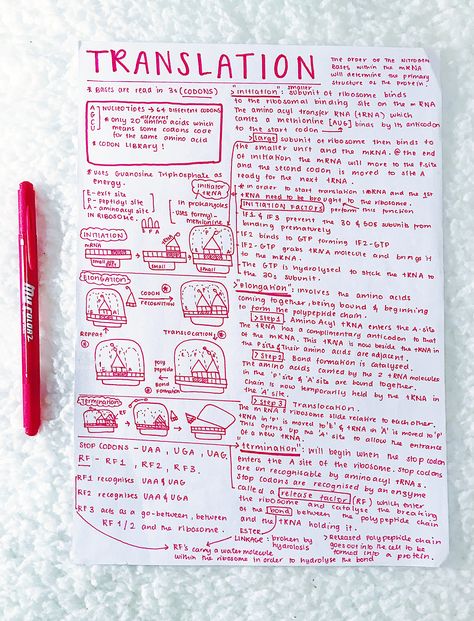 TRANSLATION
THE ORDER OF THE NITROGEN
BASES WITHIN THE mRNA
WILL DETERMINE THE PRIMARY
STRUCTURE OF THE PROTEIN.
* BASES ARE READ IN 3s (CODONS)
A
G
C
U
NUCLEOTIDES → 64 DIFFERENT CODONS
* only 20 different amino acids which
means some codons code
for the same amino acid
* CODON LIBRARY!
* USES Guanosine Triphosphate as
energy.
E - exit site
P - Peptidyl site
A - Aminoacyl site
IN RIBOSOME.
E P A
initiator
tRNA
IN prokaryotes
uses formyl-
methionine
INITIATION
mRNA
small
small
ELONGATION
CODON
RECOGNITION
REPEAT
TRANSLOCATION
poly
peptide
Bond
formation
TERMINATION
RF
STOP CODONS - UAA, UGA, UAG,
RF - RF1, RF2, RF3.
RF1 recognises UAA and UAG
RF2 recognises UAA & UGA
RF3 acts as a go-between, between
RF1/2 and the ribosome.
RF's carry a water molecule
within the ribosome in order to hydrolyse the bond
> "initiation": smaller subunit of ribosome binds
to the ribosomal binding site on the mRNA
The amino acyl transfer RNA (tRNA) which
carries a methionine [AUG] binds by its anticodon
to the start codon
> Large subunit of ribosome then binds to
the smaller unit and the mRNA. @ the end
of initiation the mRNA will move to the P-site
and the second codon is moved to site A
ready for the next tRNA.
* in order to start translation tRNA and the 1st
tRNA need to be brought to the ribosome.
INITIATION FACTORS perform this function
IF1 & IF3 prevent the 30 & 60s subunits from
binding prematurely
IF2 binds to GTP forming IF2-GTP
IF2-GTP grabs tRNA molecule and brings it
to the mRNA.
The GTP is hydrolysed to stick the tRNA to
the 30s subunit.
> "elongation": involves the amino acids
coming together, being bound & beginning
to form the polypeptide chain.
> Step 1 Amino Acyl tRNA enters the A-site
of the mRNA. This
The tRNA has a complimentary anticodon to that
tRNA is now beside the tRNA in
the P site & their amino acids are adjacent.
> Step 2 Bond formation is catalysed.
The amino acids carried by the 2 tRNA molecules
in the 'P' site & 'A' site are bound together.
Chain is now temporarily held by the tRNA in
the 'A' site.
> Step 3 Translocation.
The mRNA & ribosome slide relative to each other.
tRNA in 'P' is moved to 'E' & tRNA in 'A' is moved to 'P'
This opens up the 'A' site to allow the entrance
of a new tRNA.
> "termination": will begin when the stop codon
enters the A site of the ribosome. Stop codons
are un recognisable by amino acyl tRNAs.
Stop codons are recognised by an enzyme
called a release factor (RF) which enter
the ribosome and catalyse the breaking
of the bond between the polypeptide chain
and the tRNA holding it.
ESTER
LINKAGE: broken by
hydrolosis
> Released polypeptide chain
goes out into the cell to be
formed into a protein.